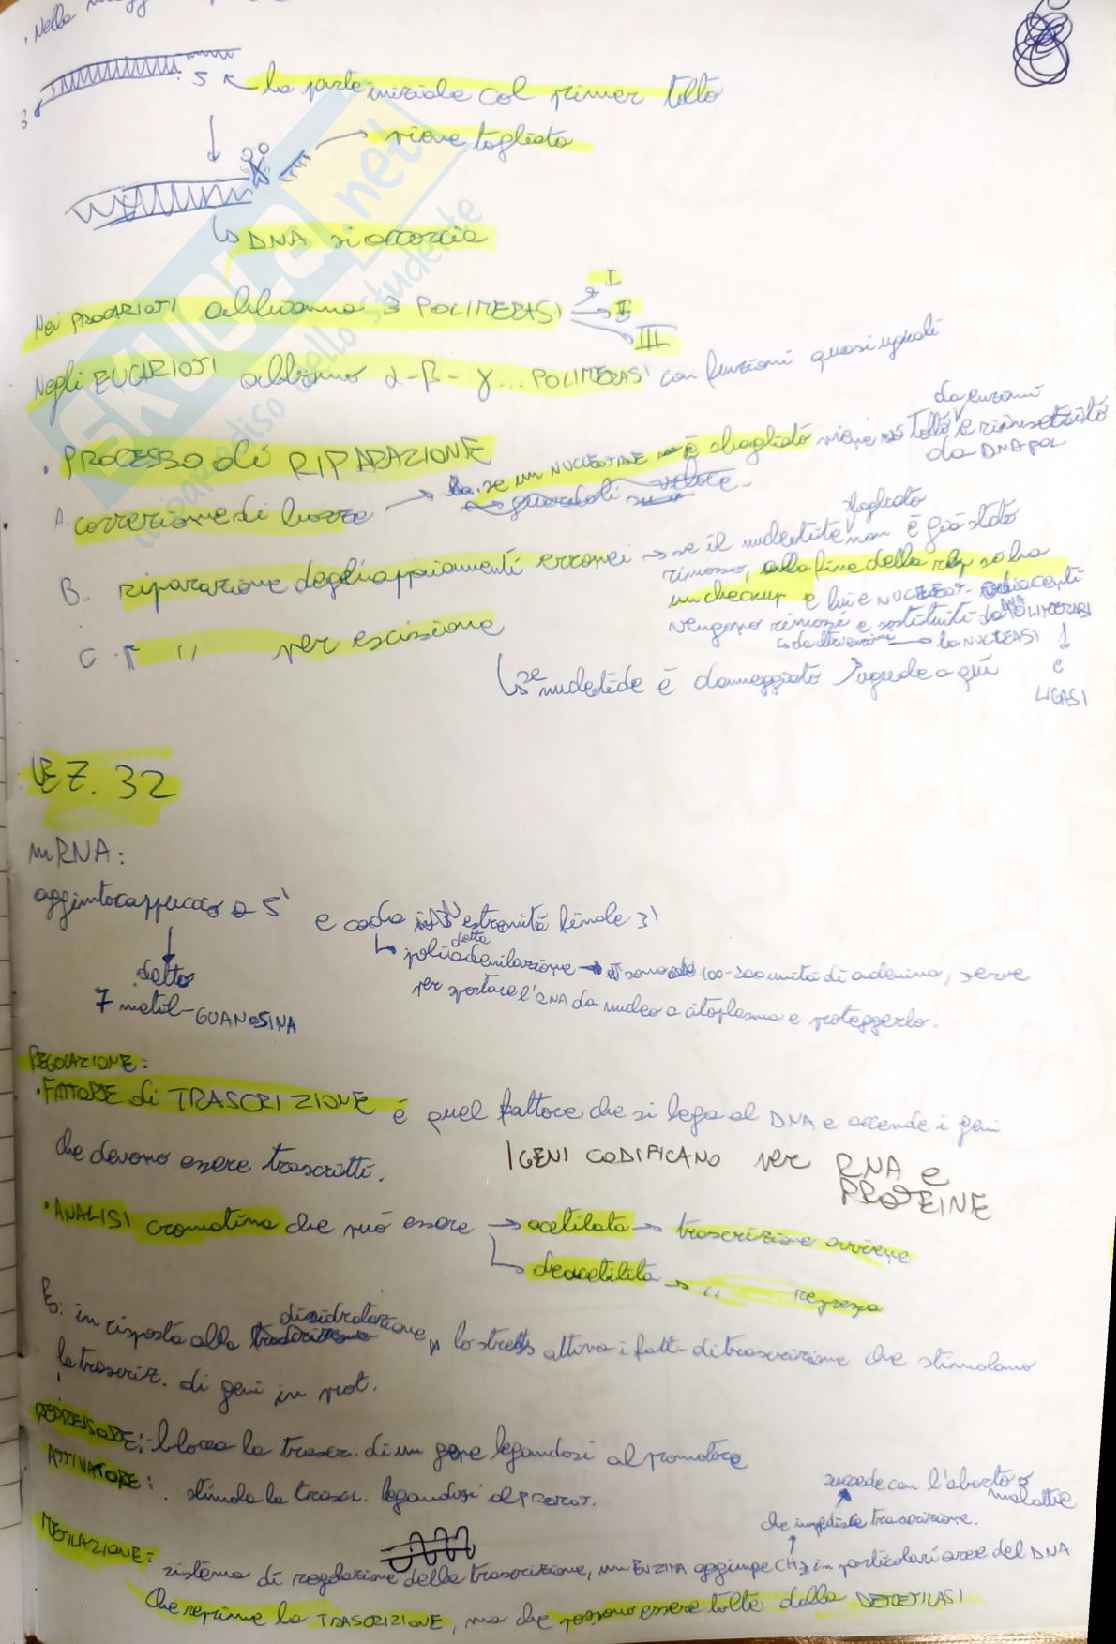 . Nella
3
5 ← la parte iniziale col primer tolto
→ viene tagliata
↳ DNA si accorcia
Nei PROCARIOTI abbiamo 3 POLIMERASI
I
II
III
Negli EUCARIOTI abbiamo α-β-γ... POLIMERASI con funzioni quasi uguali
• PROCESSO di RIPARAZIONE
A. correzione di bozze → se un NUCLEOTIDE è sbagliato viene tolto e risostituito
da enzimi
da DNA POL
B. riparazione degli appaiamenti erronei → se il nucleotide non è già stato
sbagliato
rimosso, alla fine della rep si ha
un checkup e lui e NUCLEOT. adiacenti
vengono rimossi e sostituiti da POLIMERASI
DNA
↳ da altre → la NUCLEASI
e
LIGASI
C. r " per escissione
↳ se nucleotide è danneggiato uguale a qui
LEZ. 32
mRNA:
aggiunto cappuccio a 5' e coda estremità finale 3'
detto
7 metil-GUANOSINA
↳ detta poliadenilazione → 100-200 unità di adenina, serve
per spostare l'RNA da nucleo a citoplasma e proteggerlo.
REGOLAZIONE:
• FATTORE di TRASCRIZIONE è quel fattore che si lega al DNA e accende i geni
che devono essere trascritti.
I GENI CODIFICANO per RNA e
PROTEINE
• ANALISI cromatina che può essere → acetilata → trascrizione avviene
↳ deacetilata → " repressa
Es: in risposta alla disidratazione, lo stress attiva i fatt. di trascrizione che stimolano
la trascriz. di geni in prot.
REPRESSORE: blocca la trascr. di un gene legandosi al promotore
ATTIVATORE: stimola la trascr. legandosi al promot.
succede con l'aborto o malattie
che impedisce trascrizione.
METILAZIONE: sistema di regolazione della trascrizione, un ENZIMA aggiunge CH3 in particolari aree del DNA
che reprime la TRASCRIZIONE, ma che possono essere tolte dalla DEMETILASI
SKUOLA.net
il paradiso dello studente